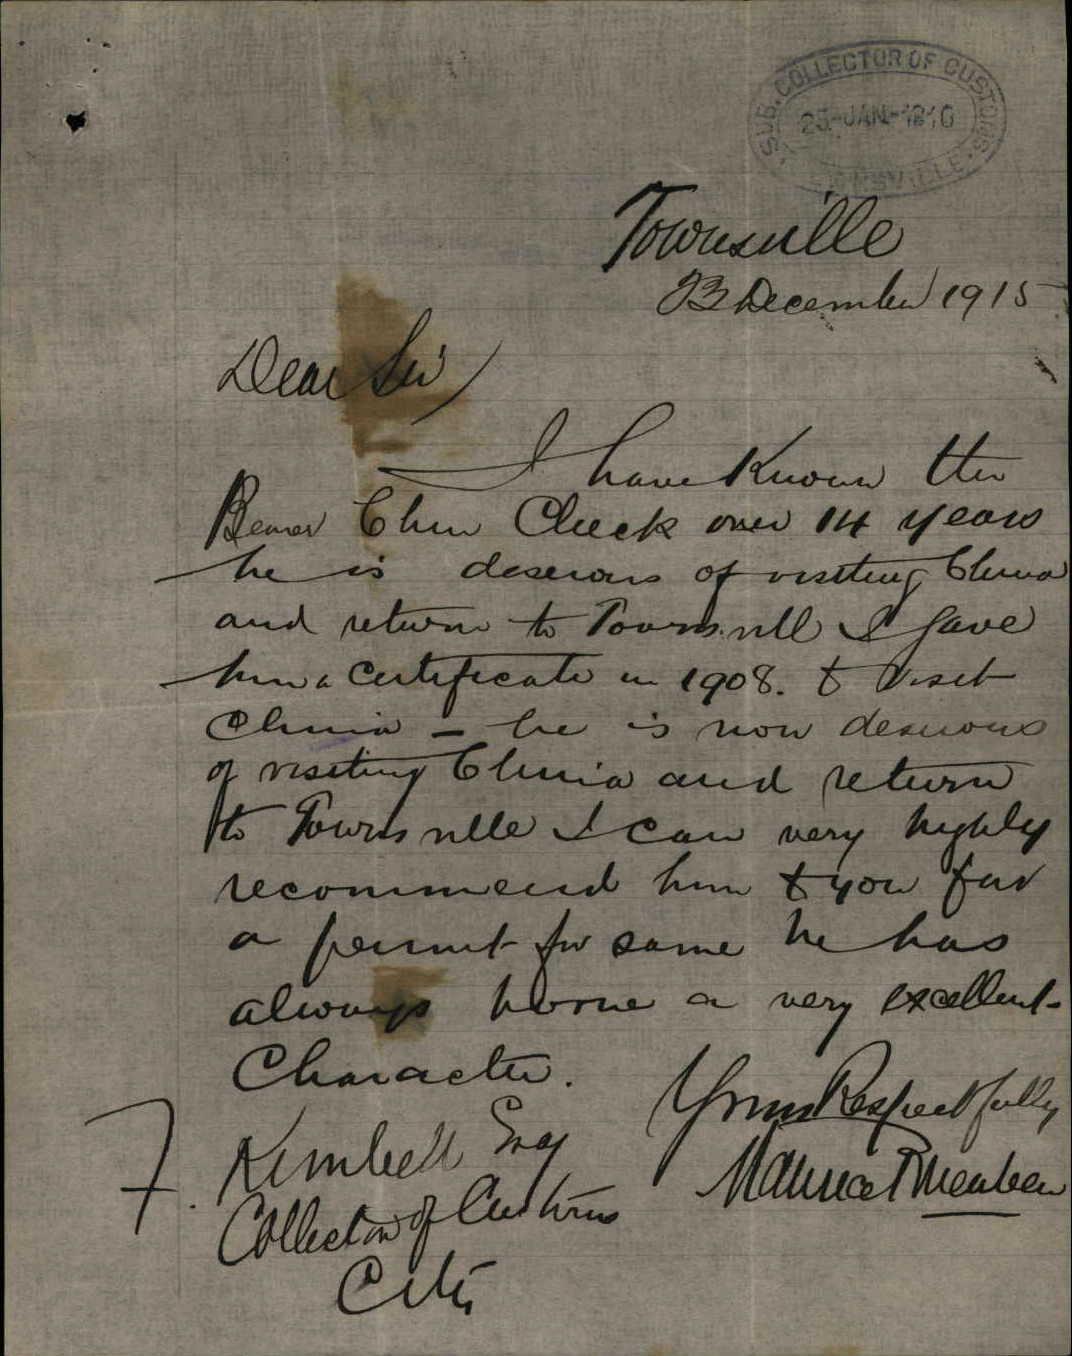 SUB. COLLECTOR OF CUSTOMS
25-JAN-1916
TOWNSVILLE
Townsville
23 December 1915
Dear Sir
I have Known the
Bearer Chin Cheek over 14 years
he is deserious of visiting China
and return to Townsvill I gave
him a Certificate in 1908. to Visit
China - he is now desirous
of visiting China and return
to Townsville I can very highly
recommend him to you for
a permit for same he has
always borne a very excellent
Character.
Yours Respectfully
Maurice
F. Kimbell Esq
Collector of Customs
City